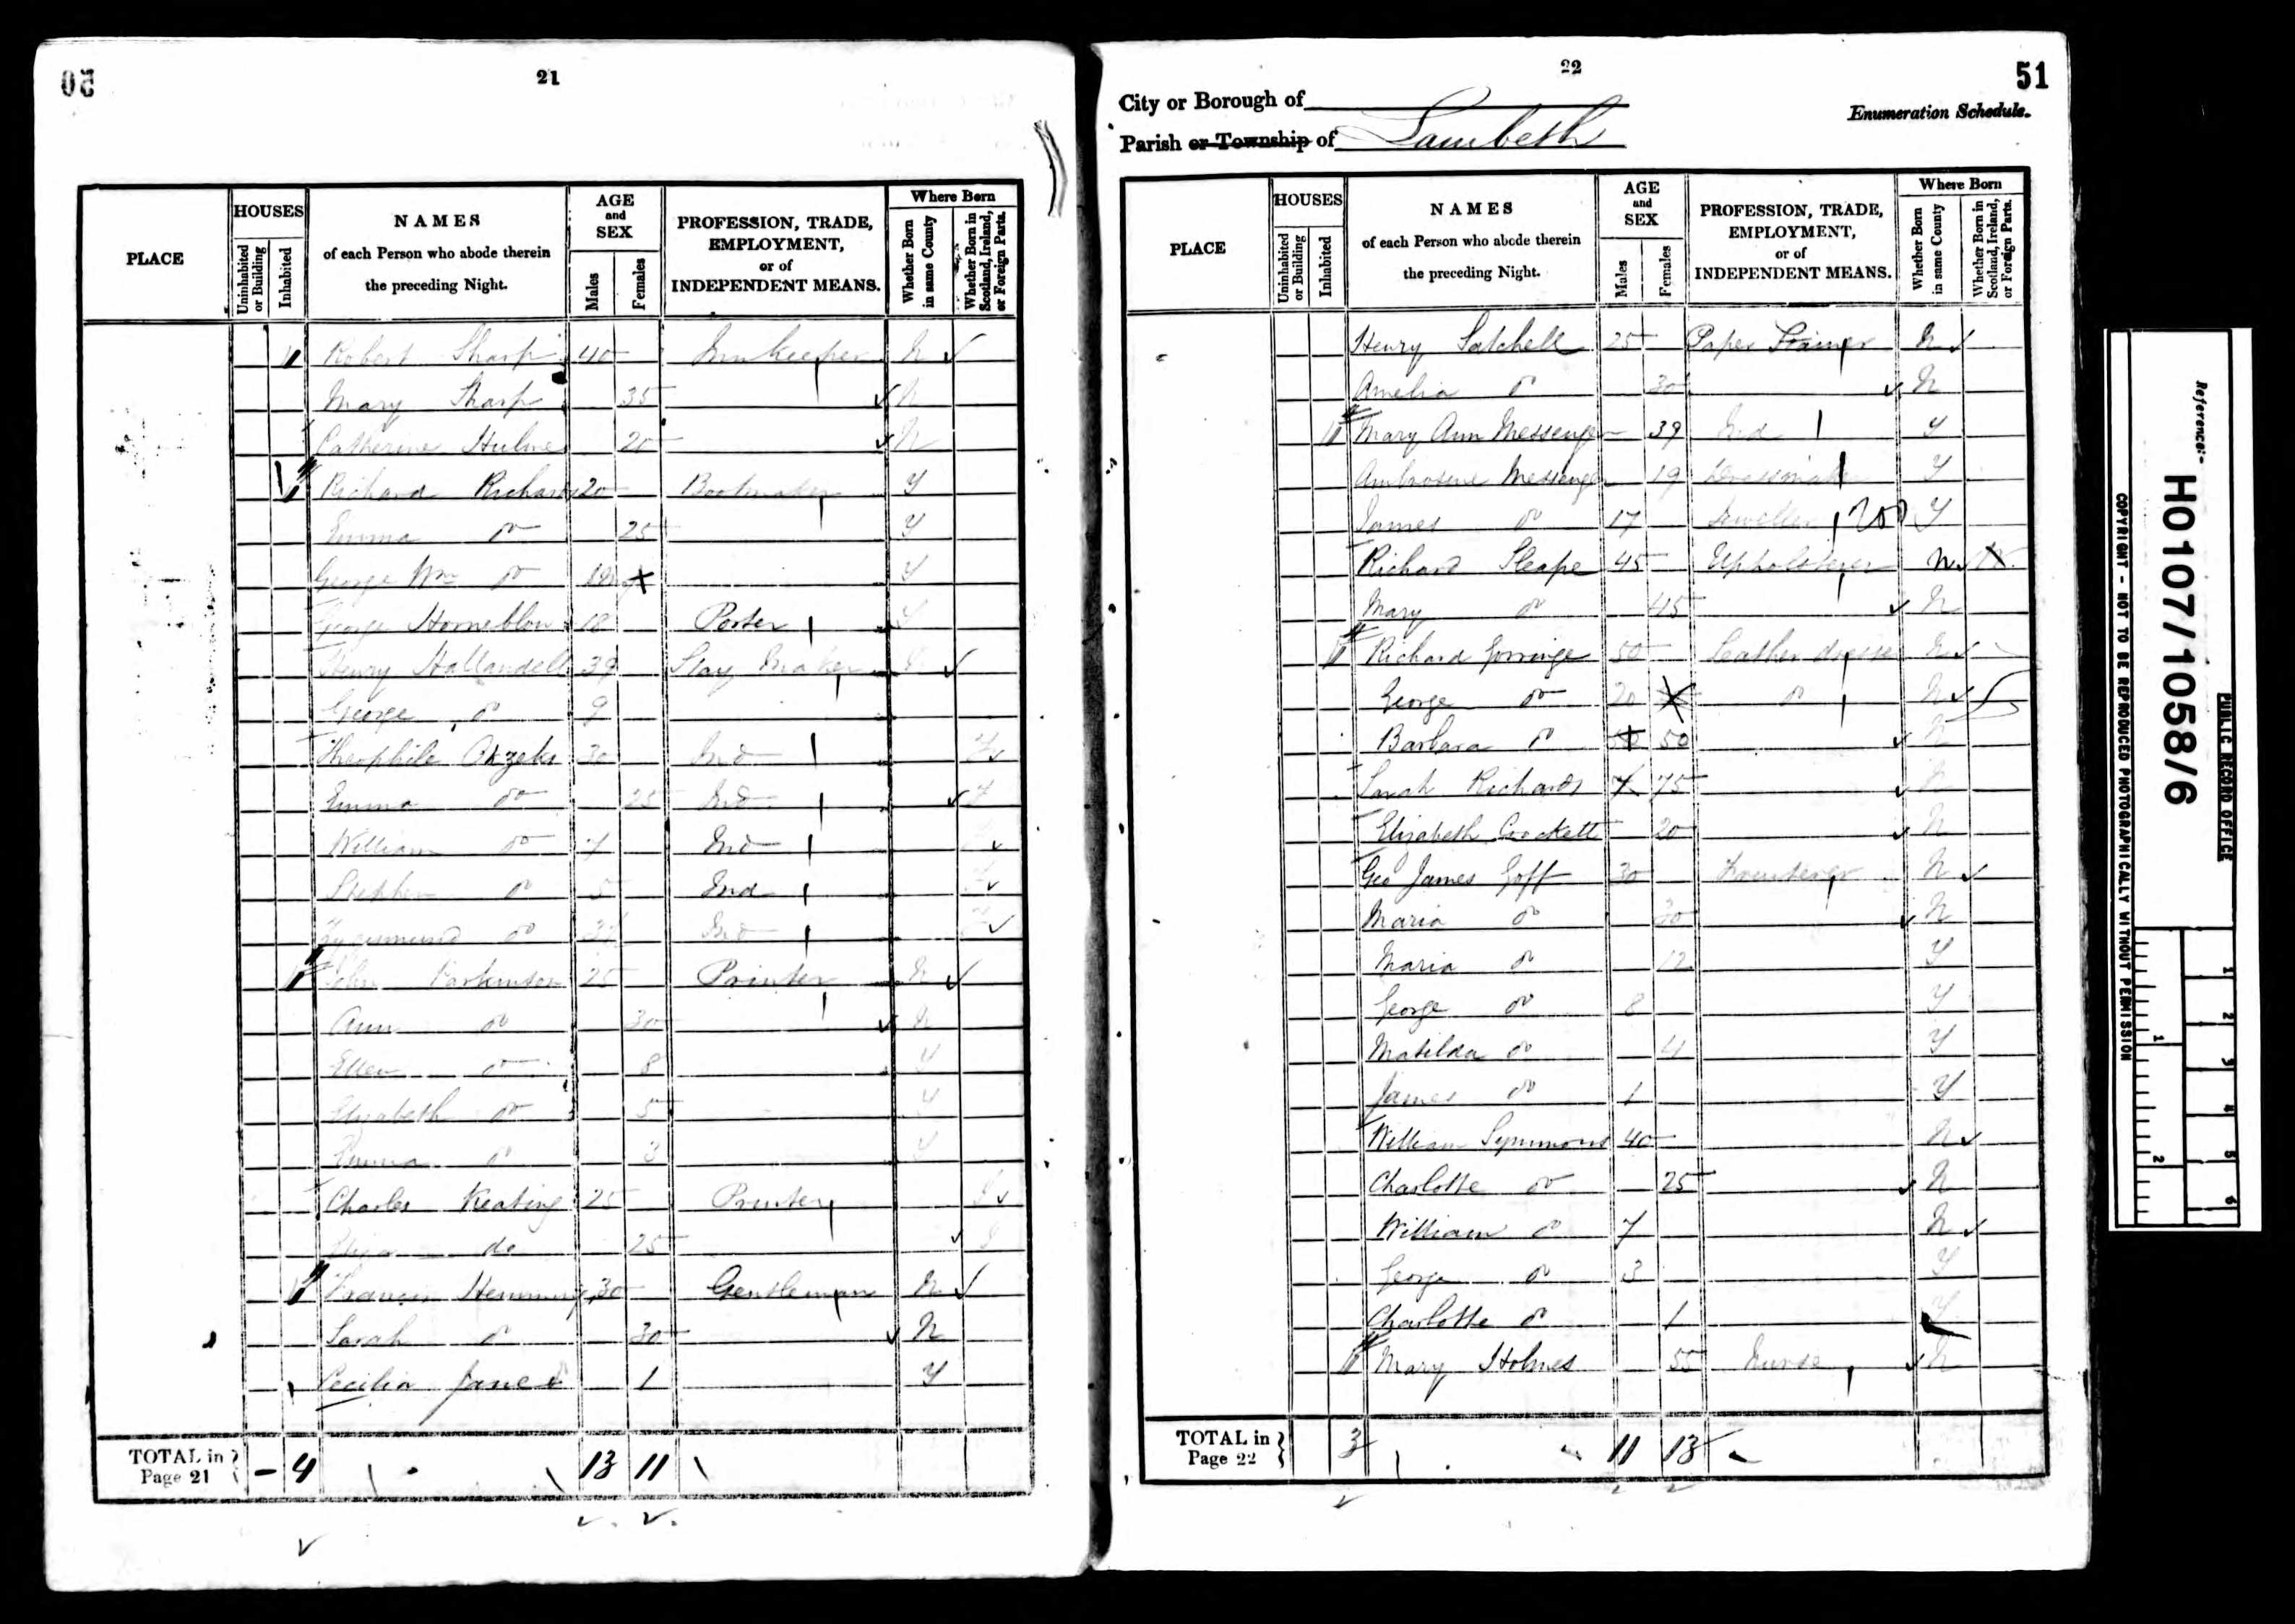 05
21
PLACE
HOUSES
Uninhabited or Building
Inhabited
NAMES
of each Person who abode therein
the preceding Night.
AGE
and
SEX
Males
Females
PROFESSION, TRADE,
EMPLOYMENT,
or of
INDEPENDENT MEANS.
Where Born
Whether Born in same County
Whether Born in Scotland, Ireland, or Foreign Parts.
1 Robert Sharp 40 Innkeeper N
Mary Sharp 35 N
Catherine Hulme 20 N
1 Richard Richards 20 Bootmaker Y
Emma do 25 Y
George Wm do Y
George Horneblow Porter
Henry 39 Stay Maker
George do 9
Theophile 30 Ind F
Emma do 25 Ind F
William do 7 Ind
Stephen do 5 Ind
do Ind
1 John Parkinson 25 Printer N
Ann do 30 N
Ellen do 8 Y
Elizabeth do 5 Y
Emma do 3 Y
Charles Keating 25 Printer I
Eliza do 25 I
1 Francis Hemming 30 Gentleman N
Sarah do 30 N
Cecilia Jane do 1 Y
TOTAL in
Page 21
- 4 13 11
22
51
City or Borough of
Enumeration Schedule.
Parish or Township of Lambeth
PLACE
HOUSES
Uninhabited or Building
Inhabited
NAMES
of each Person who abode therein
the preceding Night.
AGE
and
SEX
Males
Females
PROFESSION, TRADE,
EMPLOYMENT,
or of
INDEPENDENT MEANS.
Where Born
Whether Born in same County
Whether Born in Scotland, Ireland, or Foreign Parts.
Henry Satchell 25 Paper Stainer N
Amelia do 30 N
1 Mary Ann Messenger 39 Ind Y
Messenger 19 Dressmaker Y
James do 17 Jeweller Y
Richard Sleape 45 Upholsterer N
Mary do 45 N
1 Richard Gorringe 50 Leather dresser N
George do 20 do N
Barbara do 50 N
Sarah Richards 75 N
Elizabeth Crockett 20 N
Geo James Goff 30 N
Maria do 30 N
Maria do 12 Y
George do 8 Y
Matilda do 4 Y
James do 1 Y
William Symmons 40 N
Charlotte do 25 N
William do 7 N
George do 3 Y
Charlotte do 1 Y
1 Mary Holmes 55 Nurse N
TOTAL in
Page 22
3 11 13
Reference:-
HO107/1058/6
PUBLIC RECORD OFFICE
COPYRIGHT - NOT TO BE REPRODUCED PHOTOGRAPHICALLY WITHOUT PERMISSION
1 2
1 2 3 4 5 6